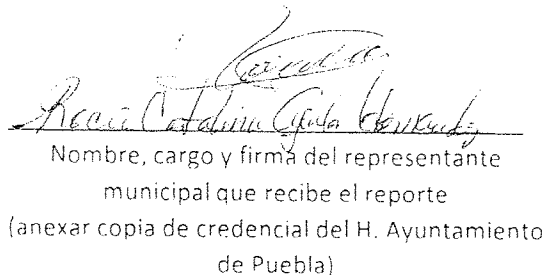 Rocío Catalina Aguila Hernandez
Nombre, cargo y firma del representante
municipal que recibe el reporte
(anexar copia de credencial del H. Ayuntamiento
de Puebla)